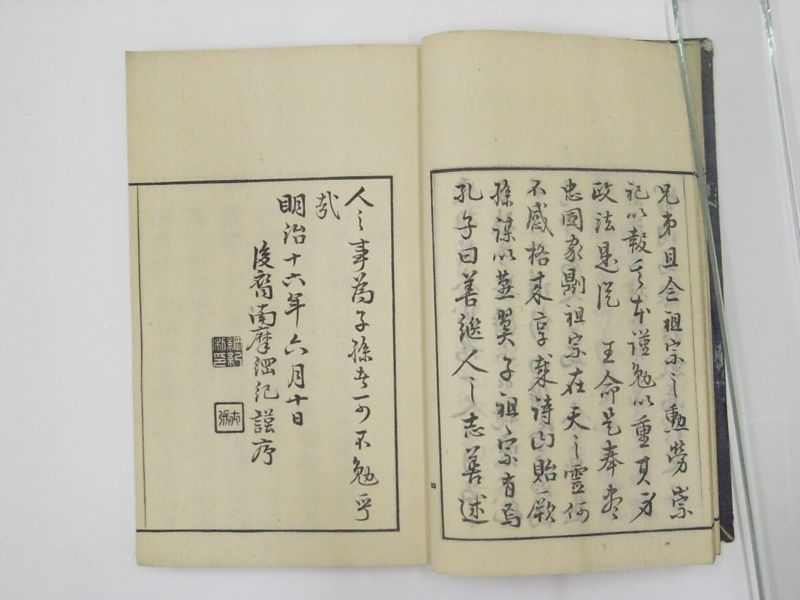 兄弟且念祖宗之勳労崇
祀以報其本謹勉以重其身
政法是從王命是奉尽
忠国家則祖宗在天之霊何
不感格来享哉詩曰貽厥
孫謀以燕翼子祖宗有焉
孔子曰善継人之志善述
人之事為子孫者可不勉乎
哉
明治十六年六月十日
後裔南摩綱紀謹序